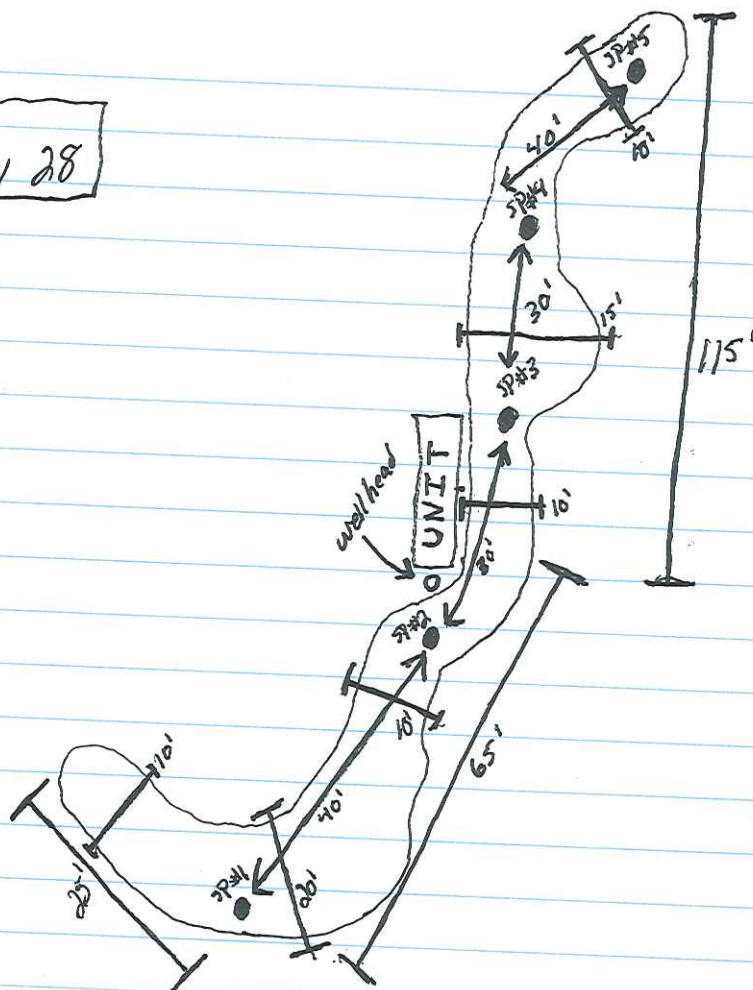 28
SP#5
40'
10'
SP#4
30'
15'
115'
SP#3
UNIT
wellhead
10'
30'
SP#2
10'
65'
40'
10'
SP#1
20'
25'